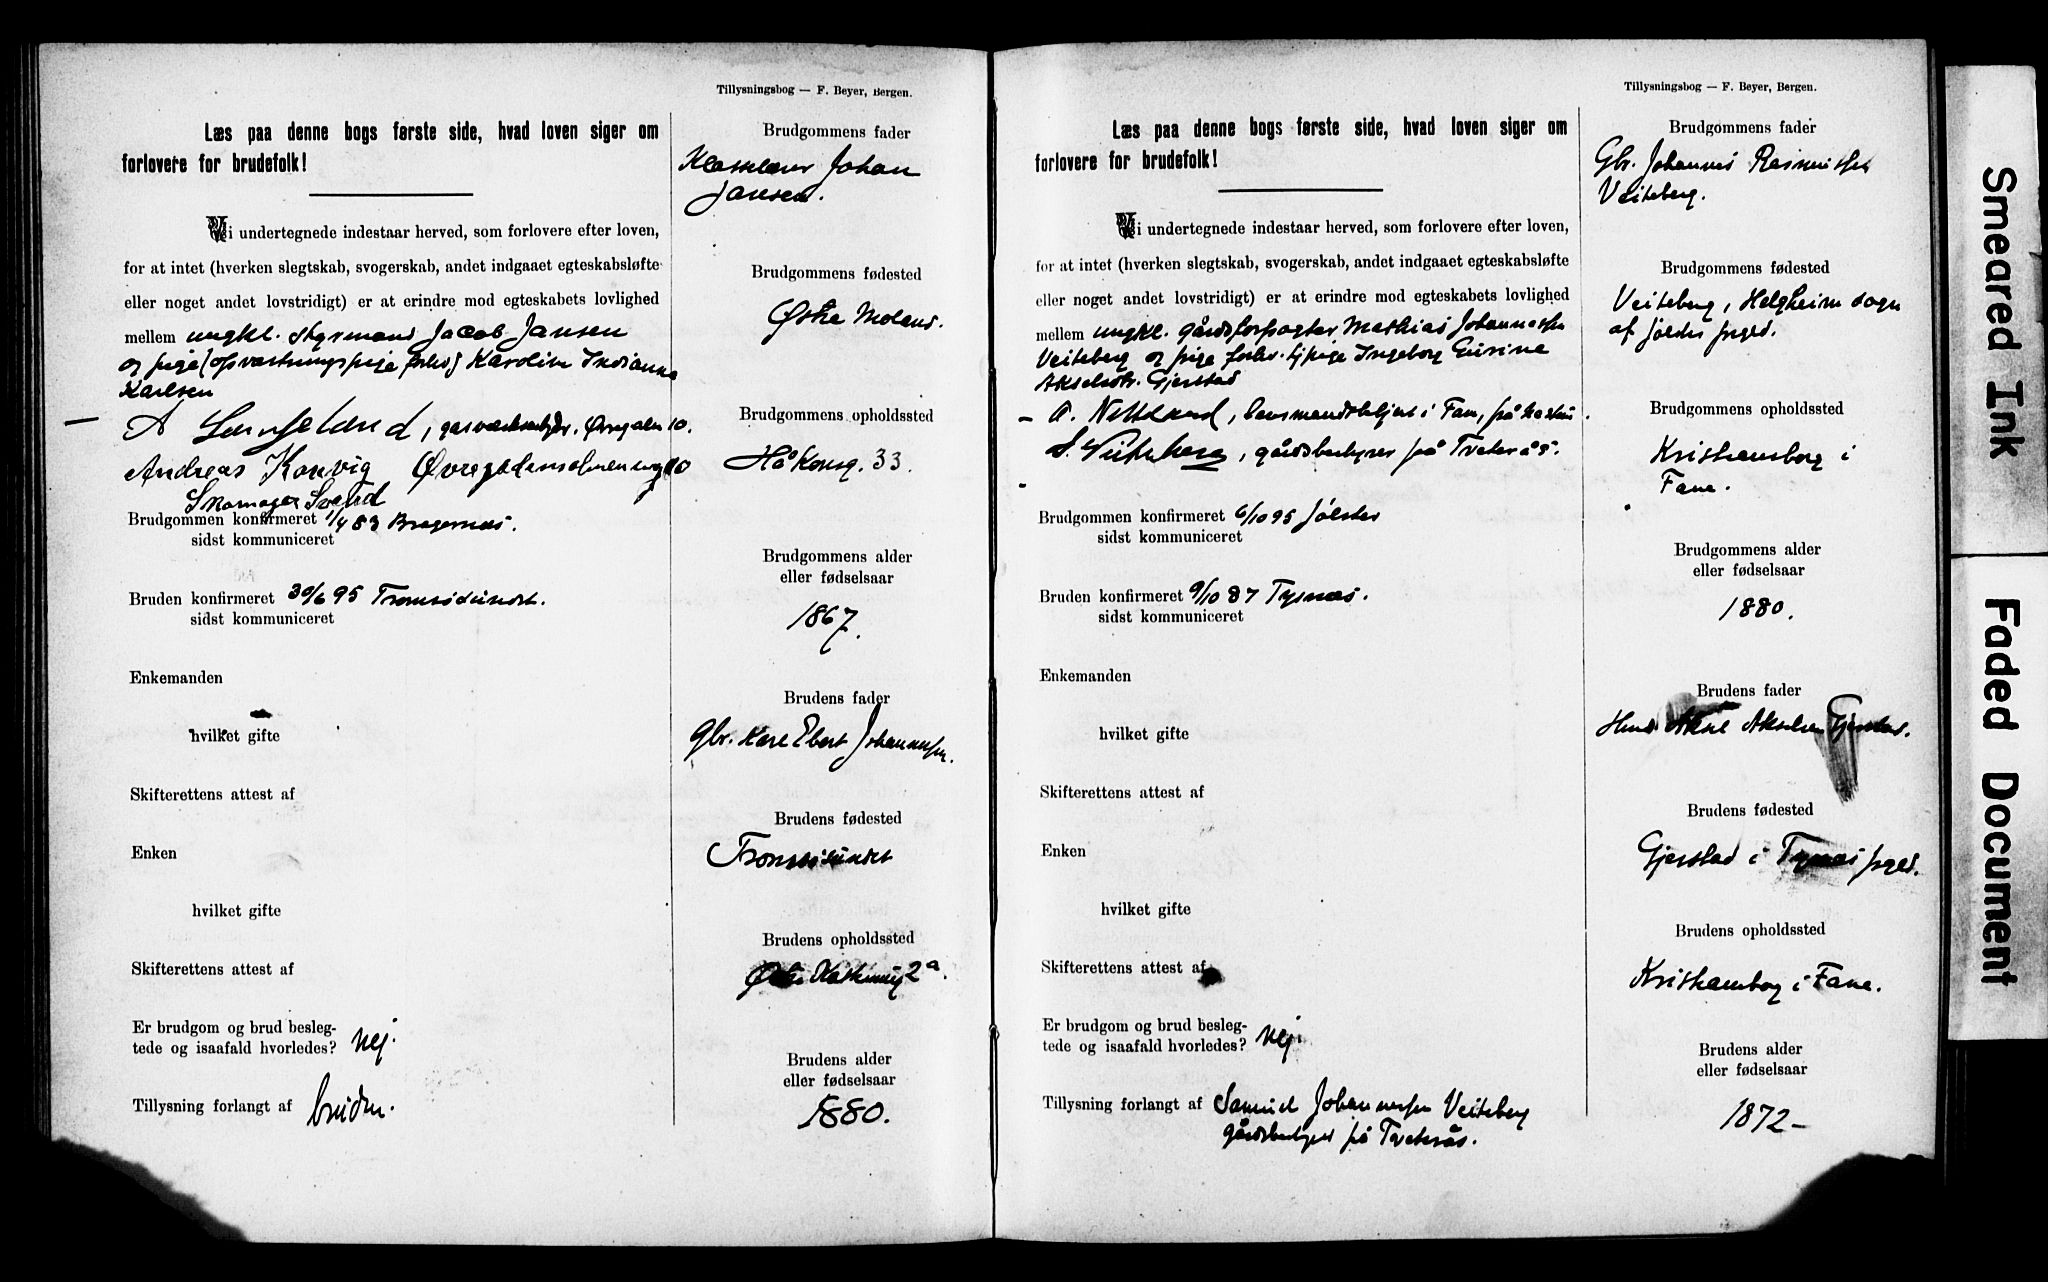 Tillysningsbog — F. Beyer, Bergen.
Læs paa denne bogs første side, hvad loven siger om
forlovere for brudefolk!
Vi undertegnede indestaar herved, som forlovere efter loven,
for at intet (hverken slegtskab, svogerskab, andet indgaaet egteskabsløfte
eller noget andet lovstridigt) er at erindre mod egteskabets lovlighed
mellem ungkl. styrmand Jacob Jansen
og pige (opvartningspige forhv) Karoline Indianna
Karlsen
A , gasværksarbejder, Øvregaten 10.
Andreas Konvig Øvregadensalmenning 10
Skomager Svend
Brudgommen konfirmeret 1/4 83 Bragernæs.
sidst kommuniceret
Bruden konfirmeret 30/6 95 Tromsøsundet.
sidst kommuniceret
Enkemanden
hvilket gifte
Skifterettens attest af
Enken
hvilket gifte
Skifterettens attest af
Er brudgom og brud besleg-
tede og isaafald hvorledes? Nej.
Tillysning forlangt af bruden.
Brudgommens fader
Johan
Jansen.
Brudgommens fødested
Østre Moland.
Brudgommens opholdssted
Håkonsg. 33.
Brudgommens alder
eller fødselsaar
1867.
Brudens fader
Gbr. Karl Ebert Johannessen.
Brudens fødested
Tromsøsundet
Brudens opholdssted
Østre 2a.
Brudens alder
eller fødselsaar
1880.
Tillysningsbog — F. Beyer, Bergen.
Læs paa denne bogs første side, hvad loven siger om
forlovere for brudefolk!
Vi undertegnede indestaar herved, som forlovere efter loven,
for at intet (hverken slegtskab, svogerskab, andet indgaaet egteskabsløfte
eller noget andet lovstridigt) er at erindre mod egteskabets lovlighed
mellem ungkl. gårdsforpagter Mathias Johannessen
Veiteberg og pige forhv. tj.pige Ingeborg Gurine
Akselsdtr. Gjerstad
A. , lensmandsbetjent i Fane, på
S. Veiteberg, gårdsbestyrer på Tveterås.
Brudgommen konfirmeret 6/10 95 Jølster
sidst kommuniceret
Bruden konfirmeret 9/10 87 Tysnæs.
sidst kommuniceret
Enkemanden
hvilket gifte
Skifterettens attest af
Enken
hvilket gifte
Skifterettens attest af
Er brudgom og brud besleg-
tede og isaafald hvorledes? Nej.
Tillysning forlangt af Samuel Johannessen Veiteberg
gårdsbestyrer på Tveterås.
Brudgommens fader
Gbr. Johannes Rasmussen
Veiteberg.
Brudgommens fødested
Veiteberg, Helgheim sogn
af Jølster prgjld.
Brudgommens opholdssted
Kristiansborg i
Fane.
Brudgommens alder
eller fødselsaar
1880.
Brudens fader
Aksel Akselsen Gjerstad.
Brudens fødested
Gjerstad i Tysnæs prgjld.
Brudens opholdssted
Kristiansborg i Fane.
Brudens alder
eller fødselsaar
1872—
Smeared Ink
Faded Document